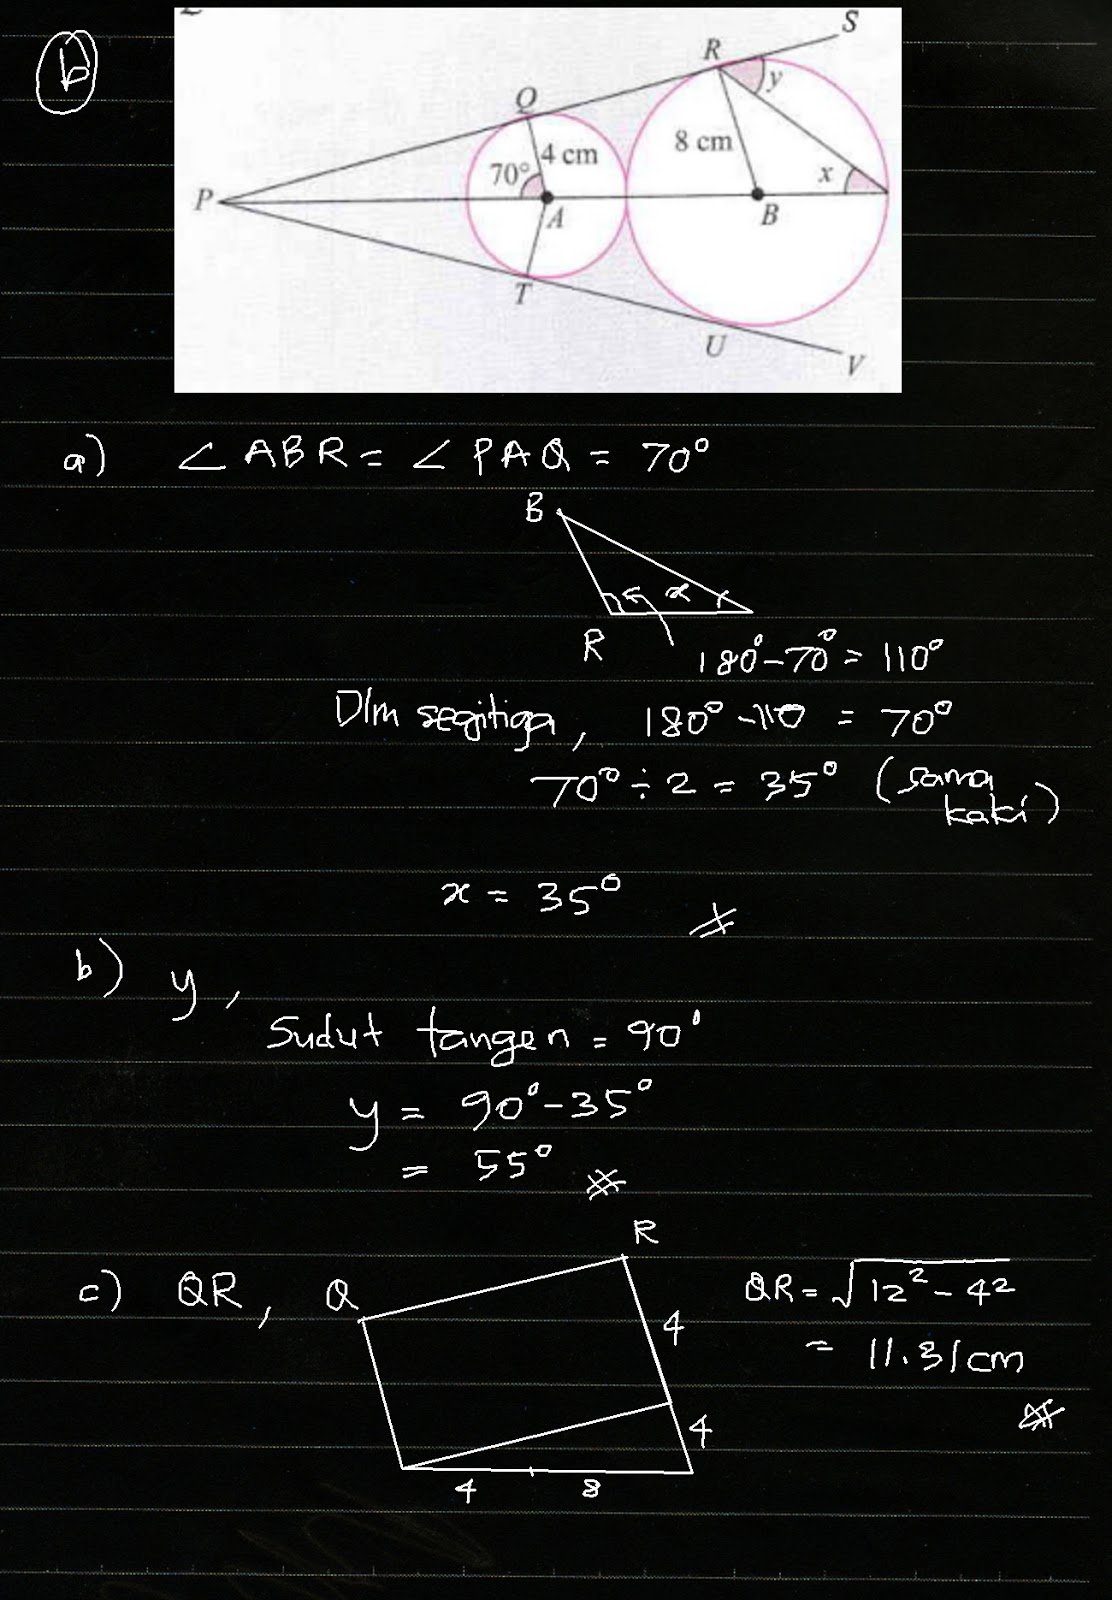 b
S
R
y
Q
4 cm
8 cm
70°
x
P
A
B
T
U
V
a) ∠ABR = ∠PAQ = 70°
B
x
R
180° - 70° = 110°
Dlm segitiga, 180° - 110 = 70°
70° ÷ 2 = 35° (sama kaki)
x = 35°
b) y,
Sudut tangen = 90°
y = 90° - 35°
= 55°
R
c) QR, Q
QR = √12² - 4²
4
= 11.31cm
4
4 8